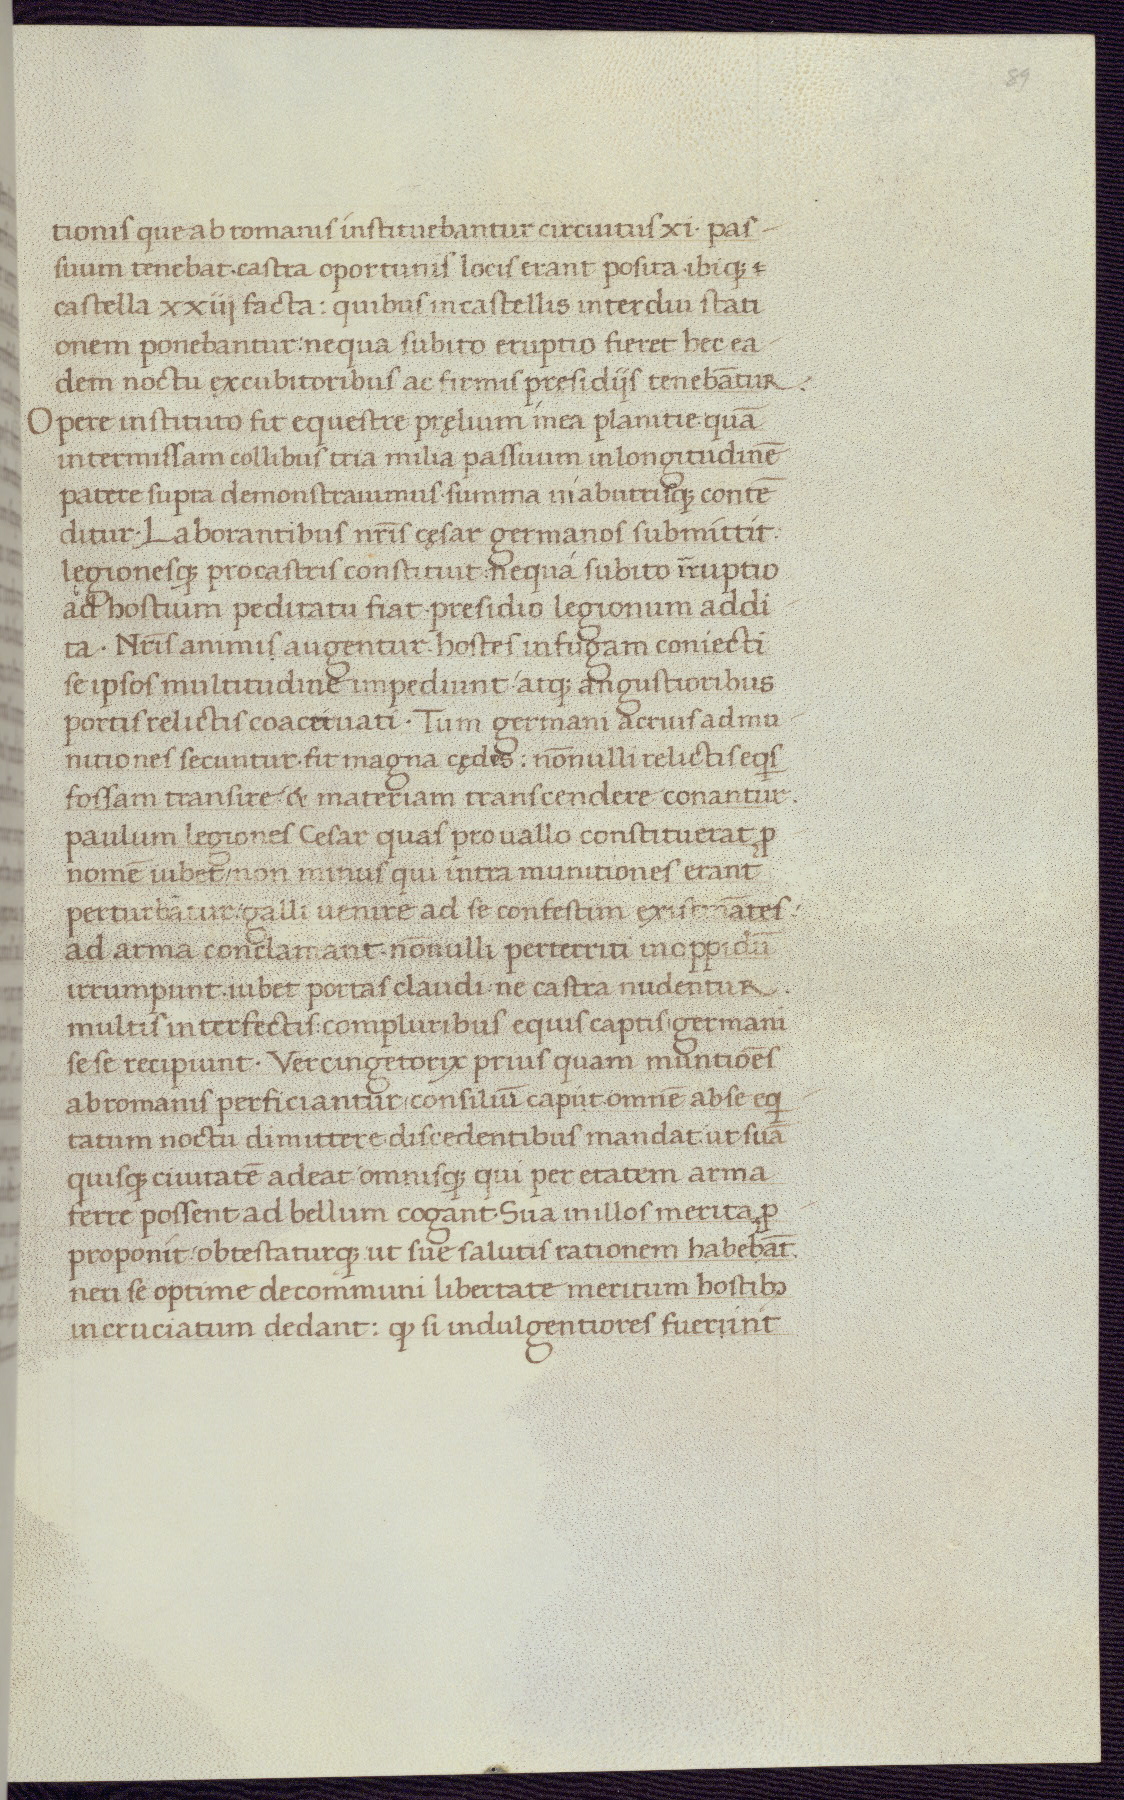 89
tionis que ab romanis instituebantur circuitus xi· pas-
suum tenebat·castra oportunis locis erant posita·ibiq;
castella xxiij facta: quibus in castellis interdiu stati
onem ponebantur·nequa subito eruptio fieret hec ea-
dem noctu ęxcubitoribus ac firmis presidijs tenebātur.
Opere instituto fit equestre pręlium inea planitie·quā
intermissam collibus tria milia passuum in longitudinē
patere supra demonstrauimus·summa ui abutrisq; contē
ditur·Laborantibus nr̄is cęsar germanos submittit·
lęgionesq; procastris constituit·nequa subito irruptio
ad hostium peditatu fiat·presidio legionum addi
ta· Nr̄is animis augentur·hostes in fugam coniecti
se ipsos multitudine impediunt·atq; angustioribus
portis relictis coaceruati· Tum germani acrius ad mu-
nitiones secuntur·fit magna cędes: nōnulli relictis eq̄s
fossam transire·& materiam transcendere conantur.
paulum legiones Cesar quas pro uallo constituerat·ꝓ
nomē iubet·non minus qui intra munitiones erant
perturbātur·galli uenire ad se confestim existimātes·
ad arma conclamant·nōnulli perterriti in oppidū
irrumpunt·iubet portas claudi·ne castra nudentur.
multis interfectis·compluribus equis captis·germani
se se recipiunt· Vercingetorix prius quam muntiōēs
ab romanis perficiantur·consiliū capit·omnē abse eq̄
tatum noctu dimittere·discedentibus mandat·ut suā
quisq; ciuitatē adeat·omnisq; qui per etatem arma
ferre possent ad bellum cogant·Sua in illos merita ꝓ
proponit·obtestaturq; ut sue salutis rationem habebāt.
neti se optime de communi libertate meritum hostibꝫ
in cruciatum dedant: ꝙ si indulgentiores fuerint